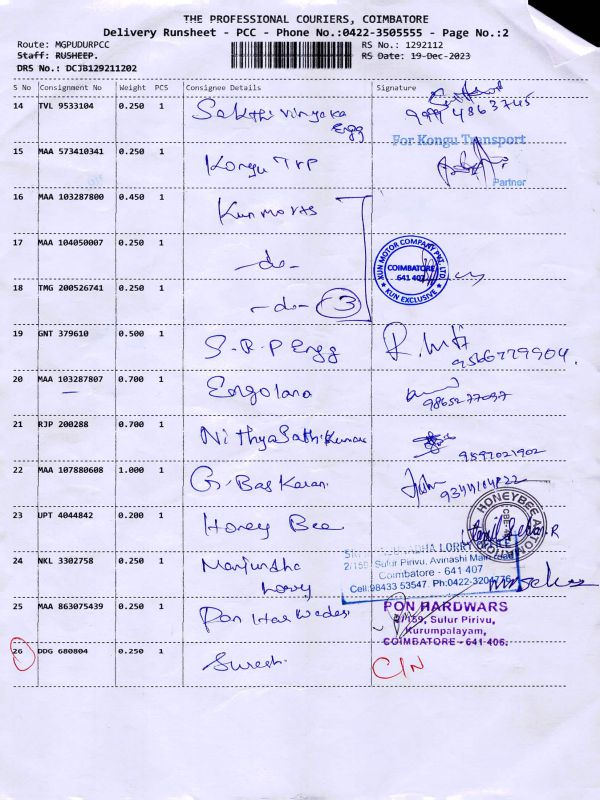 THE PROFESSIONAL COURIERS, COIMBATORE
Delivery Runsheet - PCC - Phone No.:0422-3505555 - Page No.:2
Route: MGPUDURPCC
RS No.: 1292112
Staff: RUSHEEP.
RS Date: 19-Dec-2023
DRS No.: DCJB129211202
S No Consignment No Weight PCS Consignee Details Signature
14 TVL 9533104 0.250 1 Sakthi Vinyaka
Engg
For Kongu Transport
15 MAA 573410341 0.250 1 Kongu TPP
Partner
16 MAA 103287800 0.450 1 Kun motors
17 MAA 104050007 0.250 1 -do-
KUN MOTOR COMPANY PVT. LTD.
COIMBATORE
641 407
★ KUN EXCLUSIVE ★
18 TMG 200526741 0.250 1 -do- 3
19 GNT 379610 0.500 1 S.R.P Engg
20 MAA 103287807 0.700 1
21 RJP 200288 0.700 1 Nithya Sathikumar
9597021902
22 MAA 107880608 1.000 1 G. Baskaran
23 UPT 4044842 0.200 1 Honey Bee
HONEYBEE
24 NKL 3302758 0.250 1 Manjundha
Lorry
LORRY
2/159, Sulur Pirivu, Avinashi Main Road
Coimbatore - 641 407
Cell:98433 53547. Ph:0422-
25 MAA 863075439 0.250 1 Pon Hardwares
PON HARDWARS
2/159, Sulur Pirivu,
Kurumpalayam,
COIMBATORE - 641 406.
26 DDG 680804 0.250 1 Suresh.
C/N